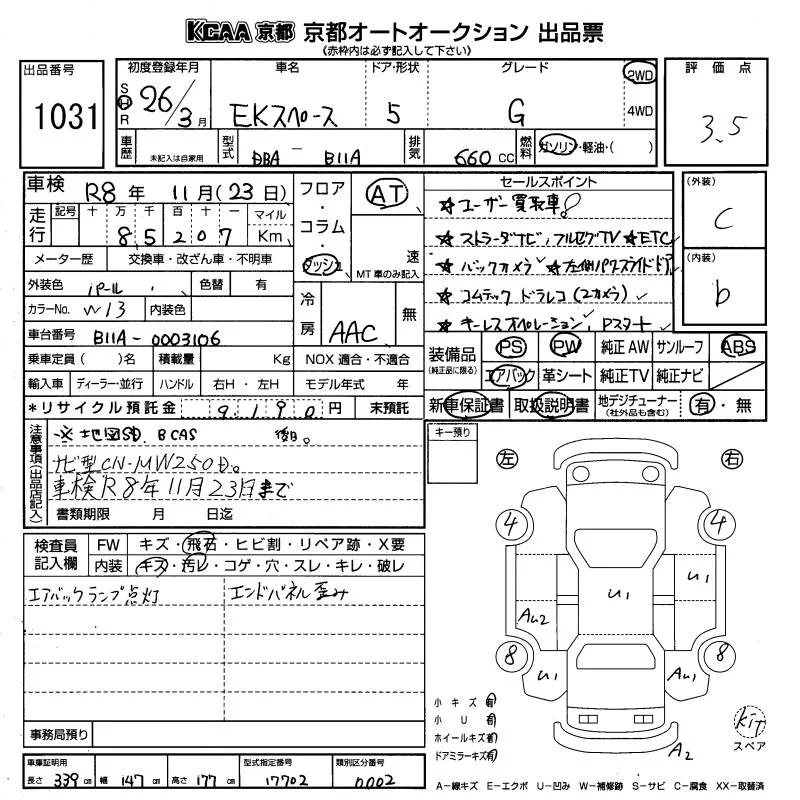 KCAA 京都 京都オートオークション 出品票
《赤枠内は必ず記入して下さい》
出品番号
1031
初度登録年月 車名 ドア・形状 グレード
S H R 26/3月 EKスペース 5 G 2WD 4WD
車歴 未記入は自家用 型式 DBA - B11A 排気 660cc 燃料 ガソリン・軽油・( )
評価点
3.5
車検 R8年 11月(23日)
走行 記号 十 万 千 百 十 一 マイル
8 5 2 0 7 Km
メーター歴 交換車・改ざん車・不明車
外装色 パール 色替 有
カラーNo. W13 内装色
車台番号 B11A-0003106
乗車定員( )名 積載量 Kg NOX適合・不適合
輸入車 ディーラー・並行 ハンドル 右H・左H モデル年式 年
*リサイクル預託金 9190円 未預託
フロア・コラム・ダッシュ
AT
速
MT車のみ記入
冷房 AAC 無
セールスポイント
☆ユーザー買取車!
☆ストラーダナビ、フルセグTV ☆ETC✓
☆バックカメラ✓ ☆左側パワースライドドア
☆コムテック ドラレコ(2カメラ)✓
☆キーレスオペレーション、Pスタート✓
(外装)
C
(内装)
b
装備品
(純正品に限る)
PS PW 純正AW サンルーフ ABS
エアバック 革シート 純正TV 純正ナビ
新車保証書 取扱説明書 地デジチューナー(社外品も含む) 有・無
注意事項(出品店記入)
※地図SD. BCAS 後日。
ナビ型CN-MW250D。
車検R8年11月23日まで
書類期限 月 日迄
キー預り
検査員記入欄
FW キズ・飛石・ヒビ割・リペア跡・X要
内装 キズ・汚レ・コゲ・穴・スレ・キレ・破レ
エアバックランプ点灯 エンドパネル歪み
事務局預り
左 右
4 4
U1 U1
AU2
8 8
U1 AU1
A2
小キズ有
小U有
ホイールキズ有
ドアミラーキズ有
kit
スペア
車庫証明用
長さ 339cm 幅 147cm 高さ 177cm
型式指定番号
17702
類別区分番号
0002
A-線キズ E-エクボ U-凹み W-補修跡 S-サビ C-腐食 XX-取替済